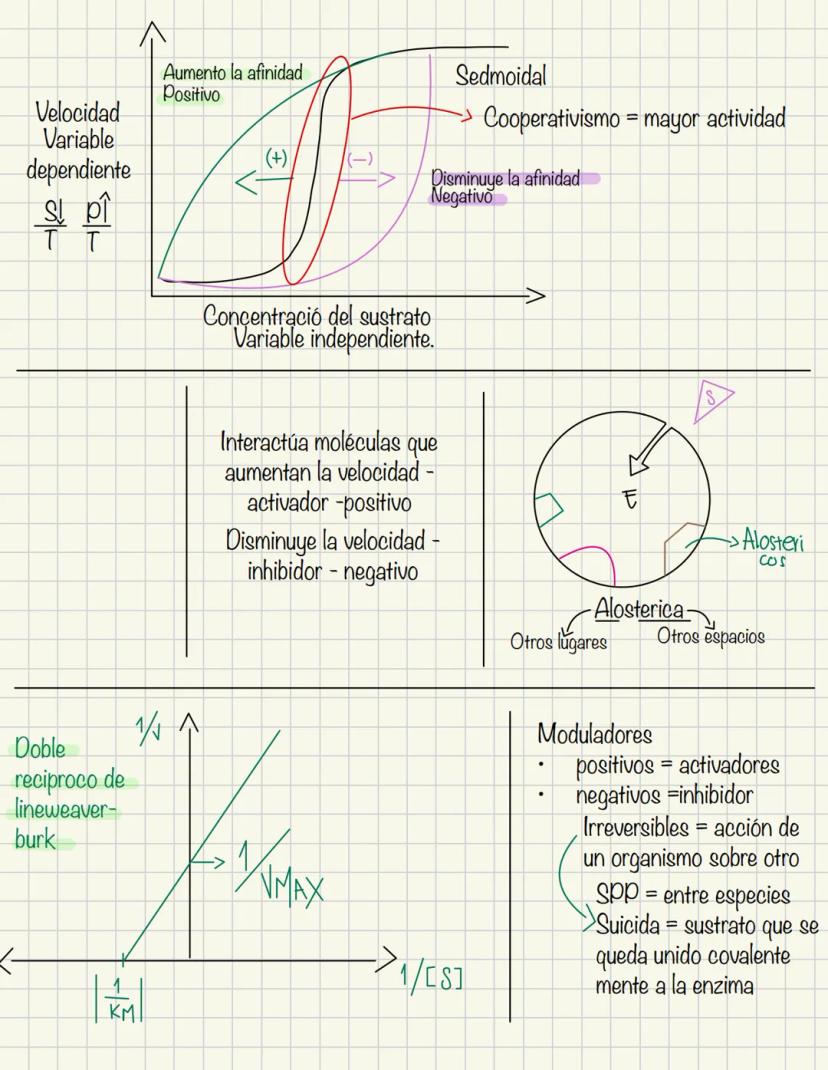 Aumento la afinidad
Positivo
Velocidad
Variable
dependiente
S↓ P↑
T T
(+)
(-)
Sedmoidal
Cooperativismo = mayor actividad
Disminuye la afinidad
Negativo
Concentració del sustrato
Variable independiente.
Interactúa moléculas que
aumentan la velocidad -
activador -positivo
Disminuye la velocidad -
inhibidor - negativo
S
E
Alosteri
cos
Alosterica
Otros lugares
Otros espacios
Doble
reciproco de
lineweaver-
burk
1/V
1/VMAX
|1/KM|
1/[S]
Moduladores
• positivos = activadores
• negativos =inhibidor
Irreversibles = acción de
un organismo sobre otro
SPP = entre especies
Suicida = sustrato que se
queda unido covalente
mente a la enzima